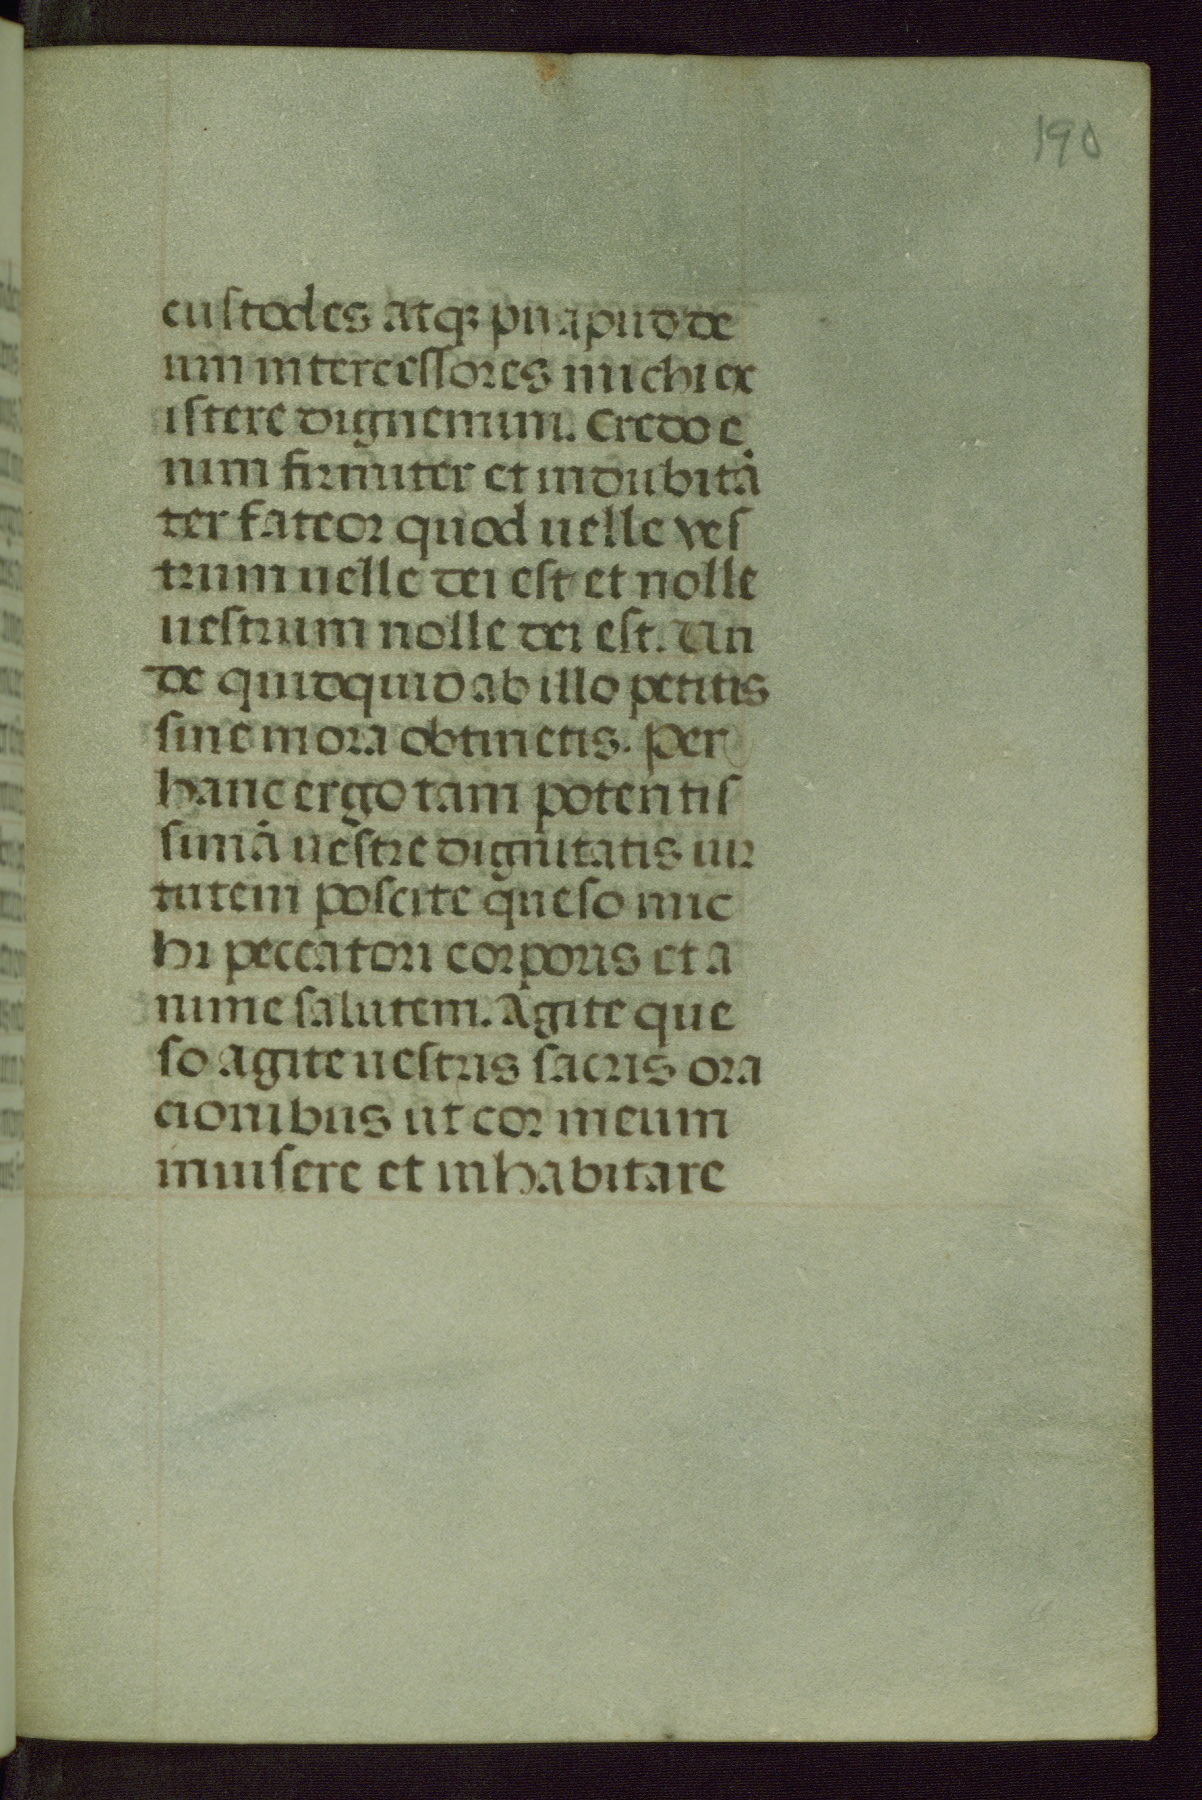 190
custodes atqꝫ pii apud de
um intercessores michi ex
istere dignemini. Credo e
nim firmiter et indubitā
ter fateor quod uelle ves
trum uelle dei est et nolle
uestrum nolle dei est. Un
de quidquid ab illo petitis
sine mora obtinetis. Per
hanc ergo tam potentis
simā uestre dignitatis uir
tutem poscite queso mic
hi peccatori corporis et a
nime salutem. Agite que
so agite uestris sacris ora
cionibus ut cor meum
inuisere et inhabitare